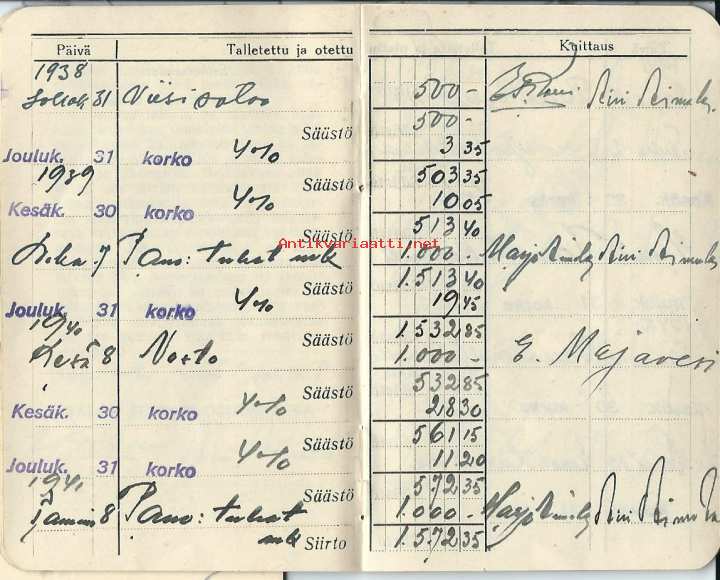 Päivä Talletettu ja otettu Kuittaus
1938
31 Viisi sataa 500 -
Säästö 500 -
Jouluk. 31 korko 4% 3 35
1939 Säästö 503 35
Kesäk. 30 korko 4% 10 05
Säästö 513 40
7 Pano: tuhat mk 1.000 -
Antikvariaatti.net
Säästö 1.513 40
Jouluk. 31 korko 4% 19 45
1940 Säästö 1.532 85
Kesä 8 Nosto 1.000 - E. Majavesi
Säästö 532 85
Kesäk. 30 korko 4% 28 30
Säästö 561 15
Jouluk. 31 korko 4% 11 20
1941 Säästö 572 35
Tammi 8 Pano: tuhat mk 1.000 -
Siirto 1.572 35